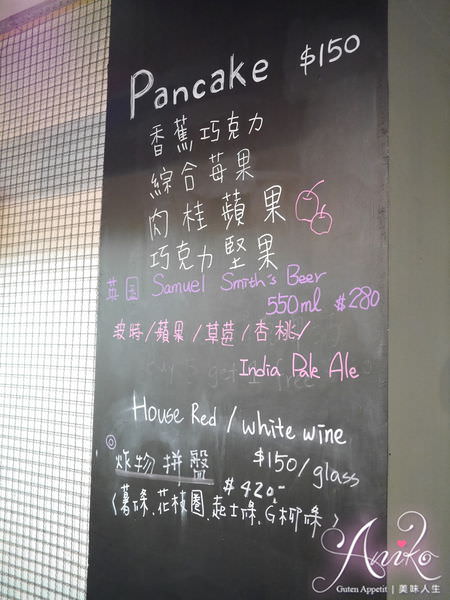 Pancake $150
香蕉巧克力
綜合莓果
肉桂蘋果
巧克力堅果
英国 Samuel Smith's Beer
550ml $280
時/蘋果/草莓/杏桃/
India Pale Ale
House Red / white wine
$150/glass
◎炸物拼盤
$420.-
(薯條.花枝圈.起士條.G柳條)
Aniko
Guten Appetit | 美味人生